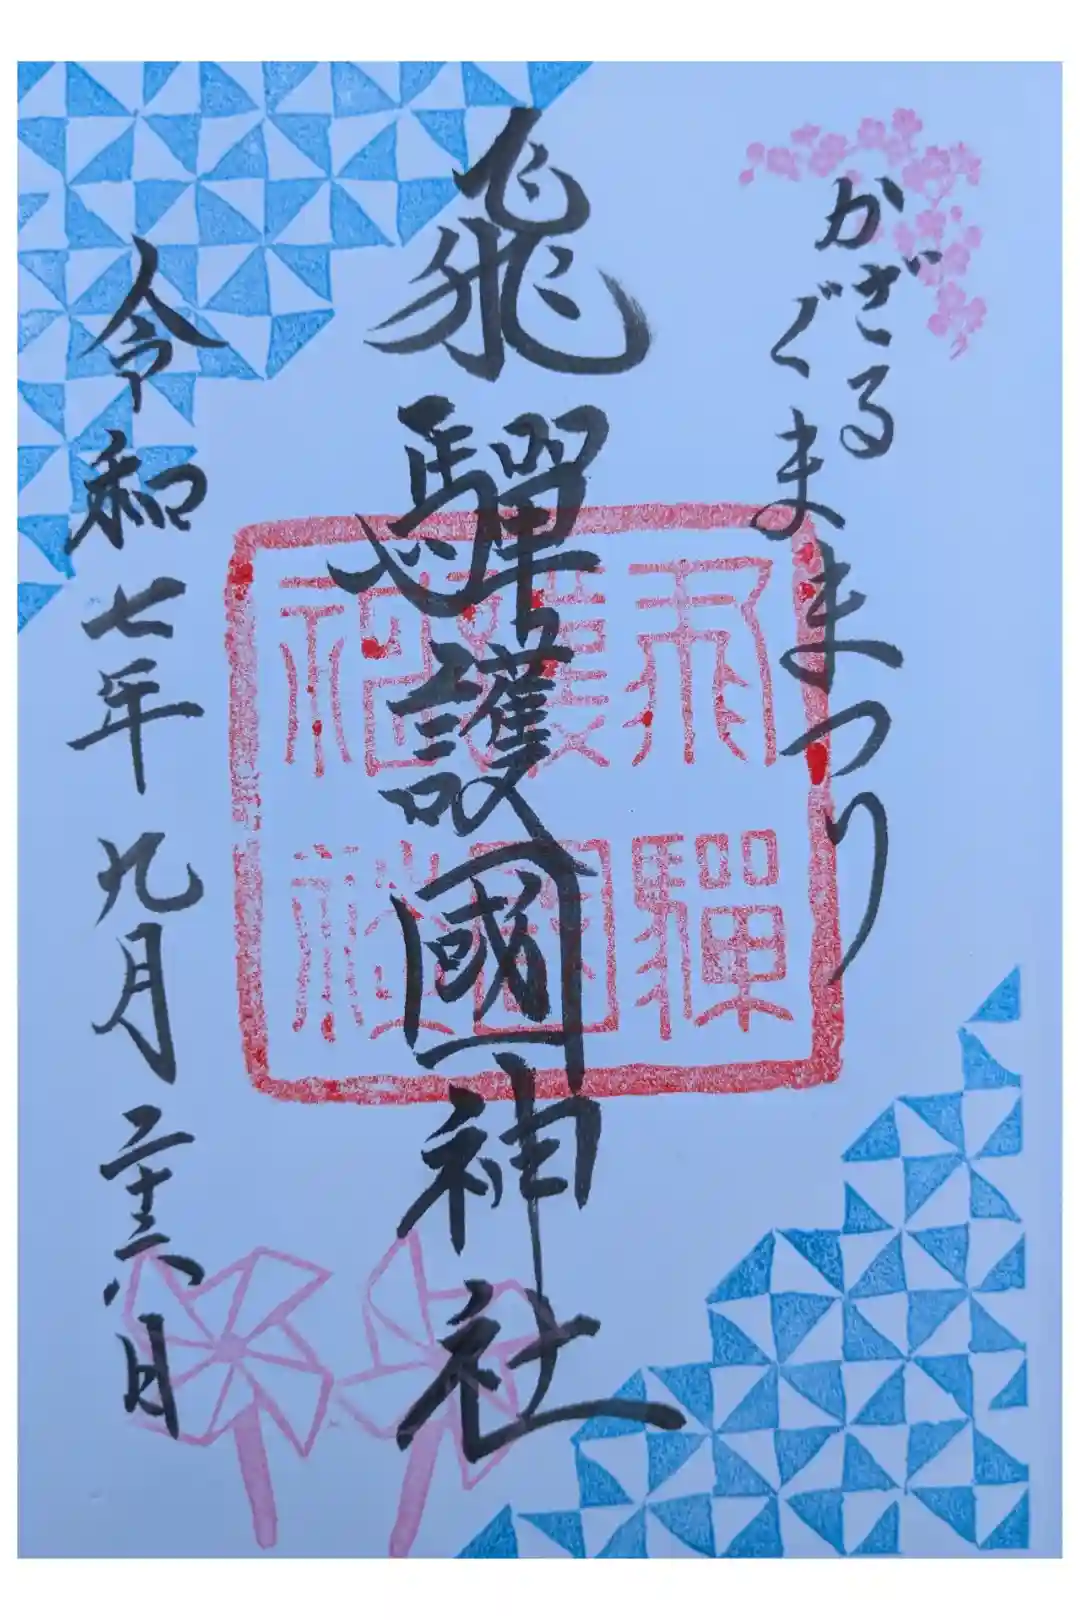 かざぐるままつり
飛驒護國神社
飛驒
護國
神社
令和七年九月二十六日